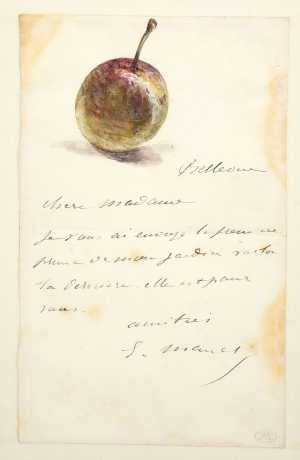 Bellevue
chère Madame
je vous ai envoyé la première
prune de mon jardin voilà
la dernière elle est pour
vous.
amitiés
E. Manet